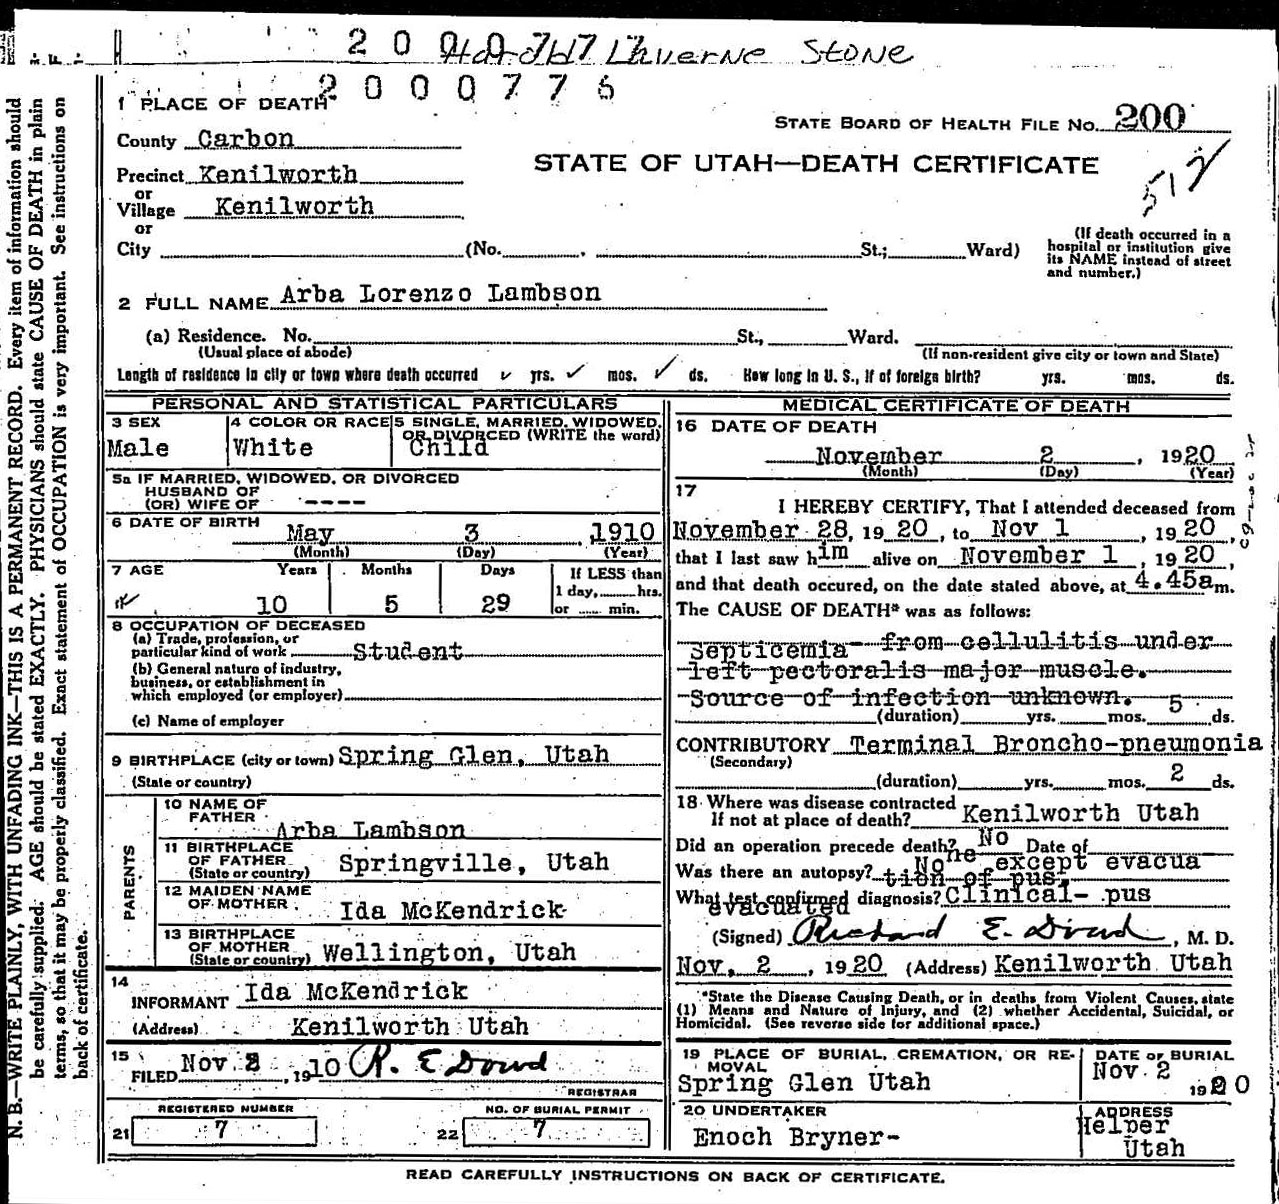 2 0 0 0 7 7 7 Harold Lhverne Stone
2 0 0 0 7 7 6
1 PLACE OF DEATH
STATE BOARD OF HEALTH FILE No. 200
County Carbon
STATE OF UTAH—DEATH CERTIFICATE
517
Precinct Kenilworth
or
Village Kenilworth
or
City (No. St.; Ward)
(If death occurred in a
hospital or institution give
its NAME instead of street
and number.)
2 FULL NAME Arba Lorenzo Lambson
(a) Residence. No. St., Ward.
(Usual place of abode) (If non-resident give city or town and State)
Length of residence in city or town where death occurred yrs. mos. ds. How long in U. S., if of foreign birth? yrs. mos. ds.
PERSONAL AND STATISTICAL PARTICULARS
3 SEX 4 COLOR OR RACE 5 SINGLE, MARRIED, WIDOWED,
OR DIVORCED (WRITE the word)
Male White Child
5a IF MARRIED, WIDOWED, OR DIVORCED
HUSBAND OF
(OR) WIFE OF ----
6 DATE OF BIRTH May 3 1910
(Month) (Day) (Year)
7 AGE Years Months Days If LESS than
1 day,......hrs.
10 5 29 or ...... min.
8 OCCUPATION OF DECEASED
(a) Trade, profession, or
particular kind of work Student
(b) General nature of industry,
business, or establishment in
which employed (or employer)
(c) Name of employer
9 BIRTHPLACE (city or town) Spring Glen, Utah
(State or country)
PARENTS
10 NAME OF
FATHER Arba Lambson
11 BIRTHPLACE
OF FATHER Springville, Utah
(State or country)
12 MAIDEN NAME
OF MOTHER Ida McKendrick
13 BIRTHPLACE
OF MOTHER
(State or country) Wellington, Utah
14
INFORMANT Ida McKendrick
(Address) Kenilworth Utah
15
FILED Nov. 2, 1910 R. E Dowd
REGISTRAR
REGISTERED NUMBER NO. OF BURIAL PERMIT
21 7 22 7
MEDICAL CERTIFICATE OF DEATH
16 DATE OF DEATH
November 2, 1920
(Month) (Day) (Year)
17
I HEREBY CERTIFY, That I attended deceased from
November 28, 1920, to Nov 1, 1920,
that I last saw him alive on November 1, 1920,
and that death occured, on the date stated above, at 4.45a m.
The CAUSE OF DEATH* was as follows:
Septicemia from cellulitis under
left pectoralis major muscle.
Source of infection unknown. 5
(duration) yrs. mos. ds.
CONTRIBUTORY Terminal Broncho-pneumonia
(Secondary)
(duration) yrs. mos. 2 ds.
18 Where was disease contracted
If not at place of death? Kenilworth Utah
Did an operation precede death? No Date of
Was there an autopsy? None except evacua
tion of pus.
What test confirmed diagnosis? Clinical- pus
evacuated
(Signed) Richard E. Dowd, M. D.
Nov, 2, 1920 (Address) Kenilworth Utah
*State the Disease Causing Death, or in deaths from Violent Causes, state
(1) Means and Nature of Injury, and (2) whether Accidental, Suicidal, or
Homicidal. (See reverse side for additional space.)
19 PLACE OF BURIAL, CREMATION, OR RE-
MOVAL
Spring Glen Utah
DATE OF BURIAL
Nov. 2
1920
20 UNDERTAKER
Enoch Bryner-
ADDRESS
Helper
Utah
READ CAREFULLY INSTRUCTIONS ON BACK OF CERTIFICATE.
N. B.—WRITE PLAINLY, WITH UNFADING INK—THIS IS A PERMANENT RECORD. Every item of information should
be carefully supplied. AGE should be stated EXACTLY. PHYSICIANS should state CAUSE OF DEATH in plain
terms, so that it may be properly classified. Exact statement of OCCUPATION is very important. See instructions on
back of certificate.